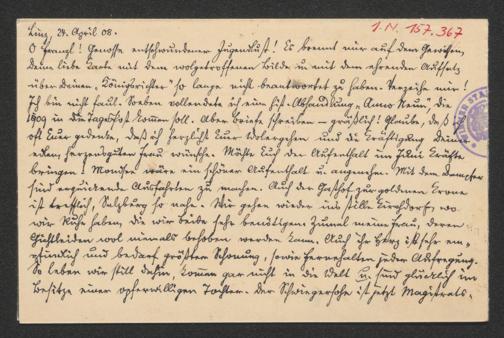 I.N. 157.367
Linz, 24. April 08.
O Franzl! Genosse entschwundener Jugendlust! Es brennt mir auf dem Gewissen,
deine liebe Karte mit dem wolgetroffenen Bilde u. mit dem ehrenden Aufsatz
über deinen „Königsrichter“ so lange nicht beantwortet zu haben. Verzeihe mir!
Ich bin nicht faul. Soeben vollendete ich eine hist. Abhandlung „Anno Neun“, die
1909 in die Tagespost kommen soll. Aber Briefe schreiben – gräßlich! Glaube, daß ich
oft Euer gedenke, daß ich herzlichst Euer Wolergehen und die Kräftigung deiner
edlen, herzensguten Frau wünsche. Möchte Euch der Aufenthalt im Kräfte
bringen! Mondsee wäre ein schöner Aufenthalt u. angenehm. Mit dem Dampfer
sind erquickende Ausfahrten zu machen. Auch der Gasthof zur goldenen Krone
ist trefflich, Salzburg so nahe. Wir gehen wieder ins stille Kirchdorf, wo
wir Ruhe haben, die wir beide sehr benötigen: Zumal meine Frau, deren
Gichtleiden wol niemals behoben werden kann. Auch ihr Herz ist sehr em-
pfindlich und bedarf größter Schonung, sowie Fernehalten jeder Aufregung.
So leben wir still dahin, kommen gar nicht in die Welt u. sind glücklich im
Besitze einer opferwilligen Tochter. Der Schwiegersohn ist jetzt Magistrats-